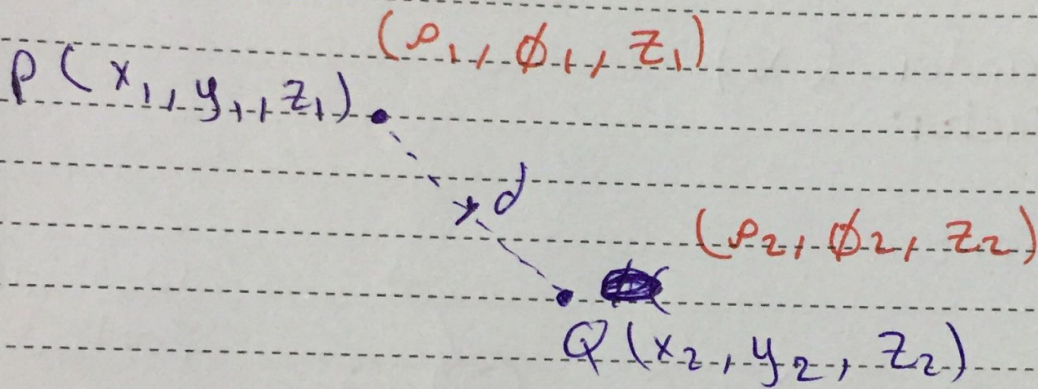 (ρ₁, ϕ₁, z₁)
P(x₁, y₁, z₁)
d
(ρ₂, ϕ₂, z₂)
Q(x₂, y₂, z₂)